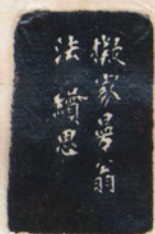 擬家曼翁
法續思